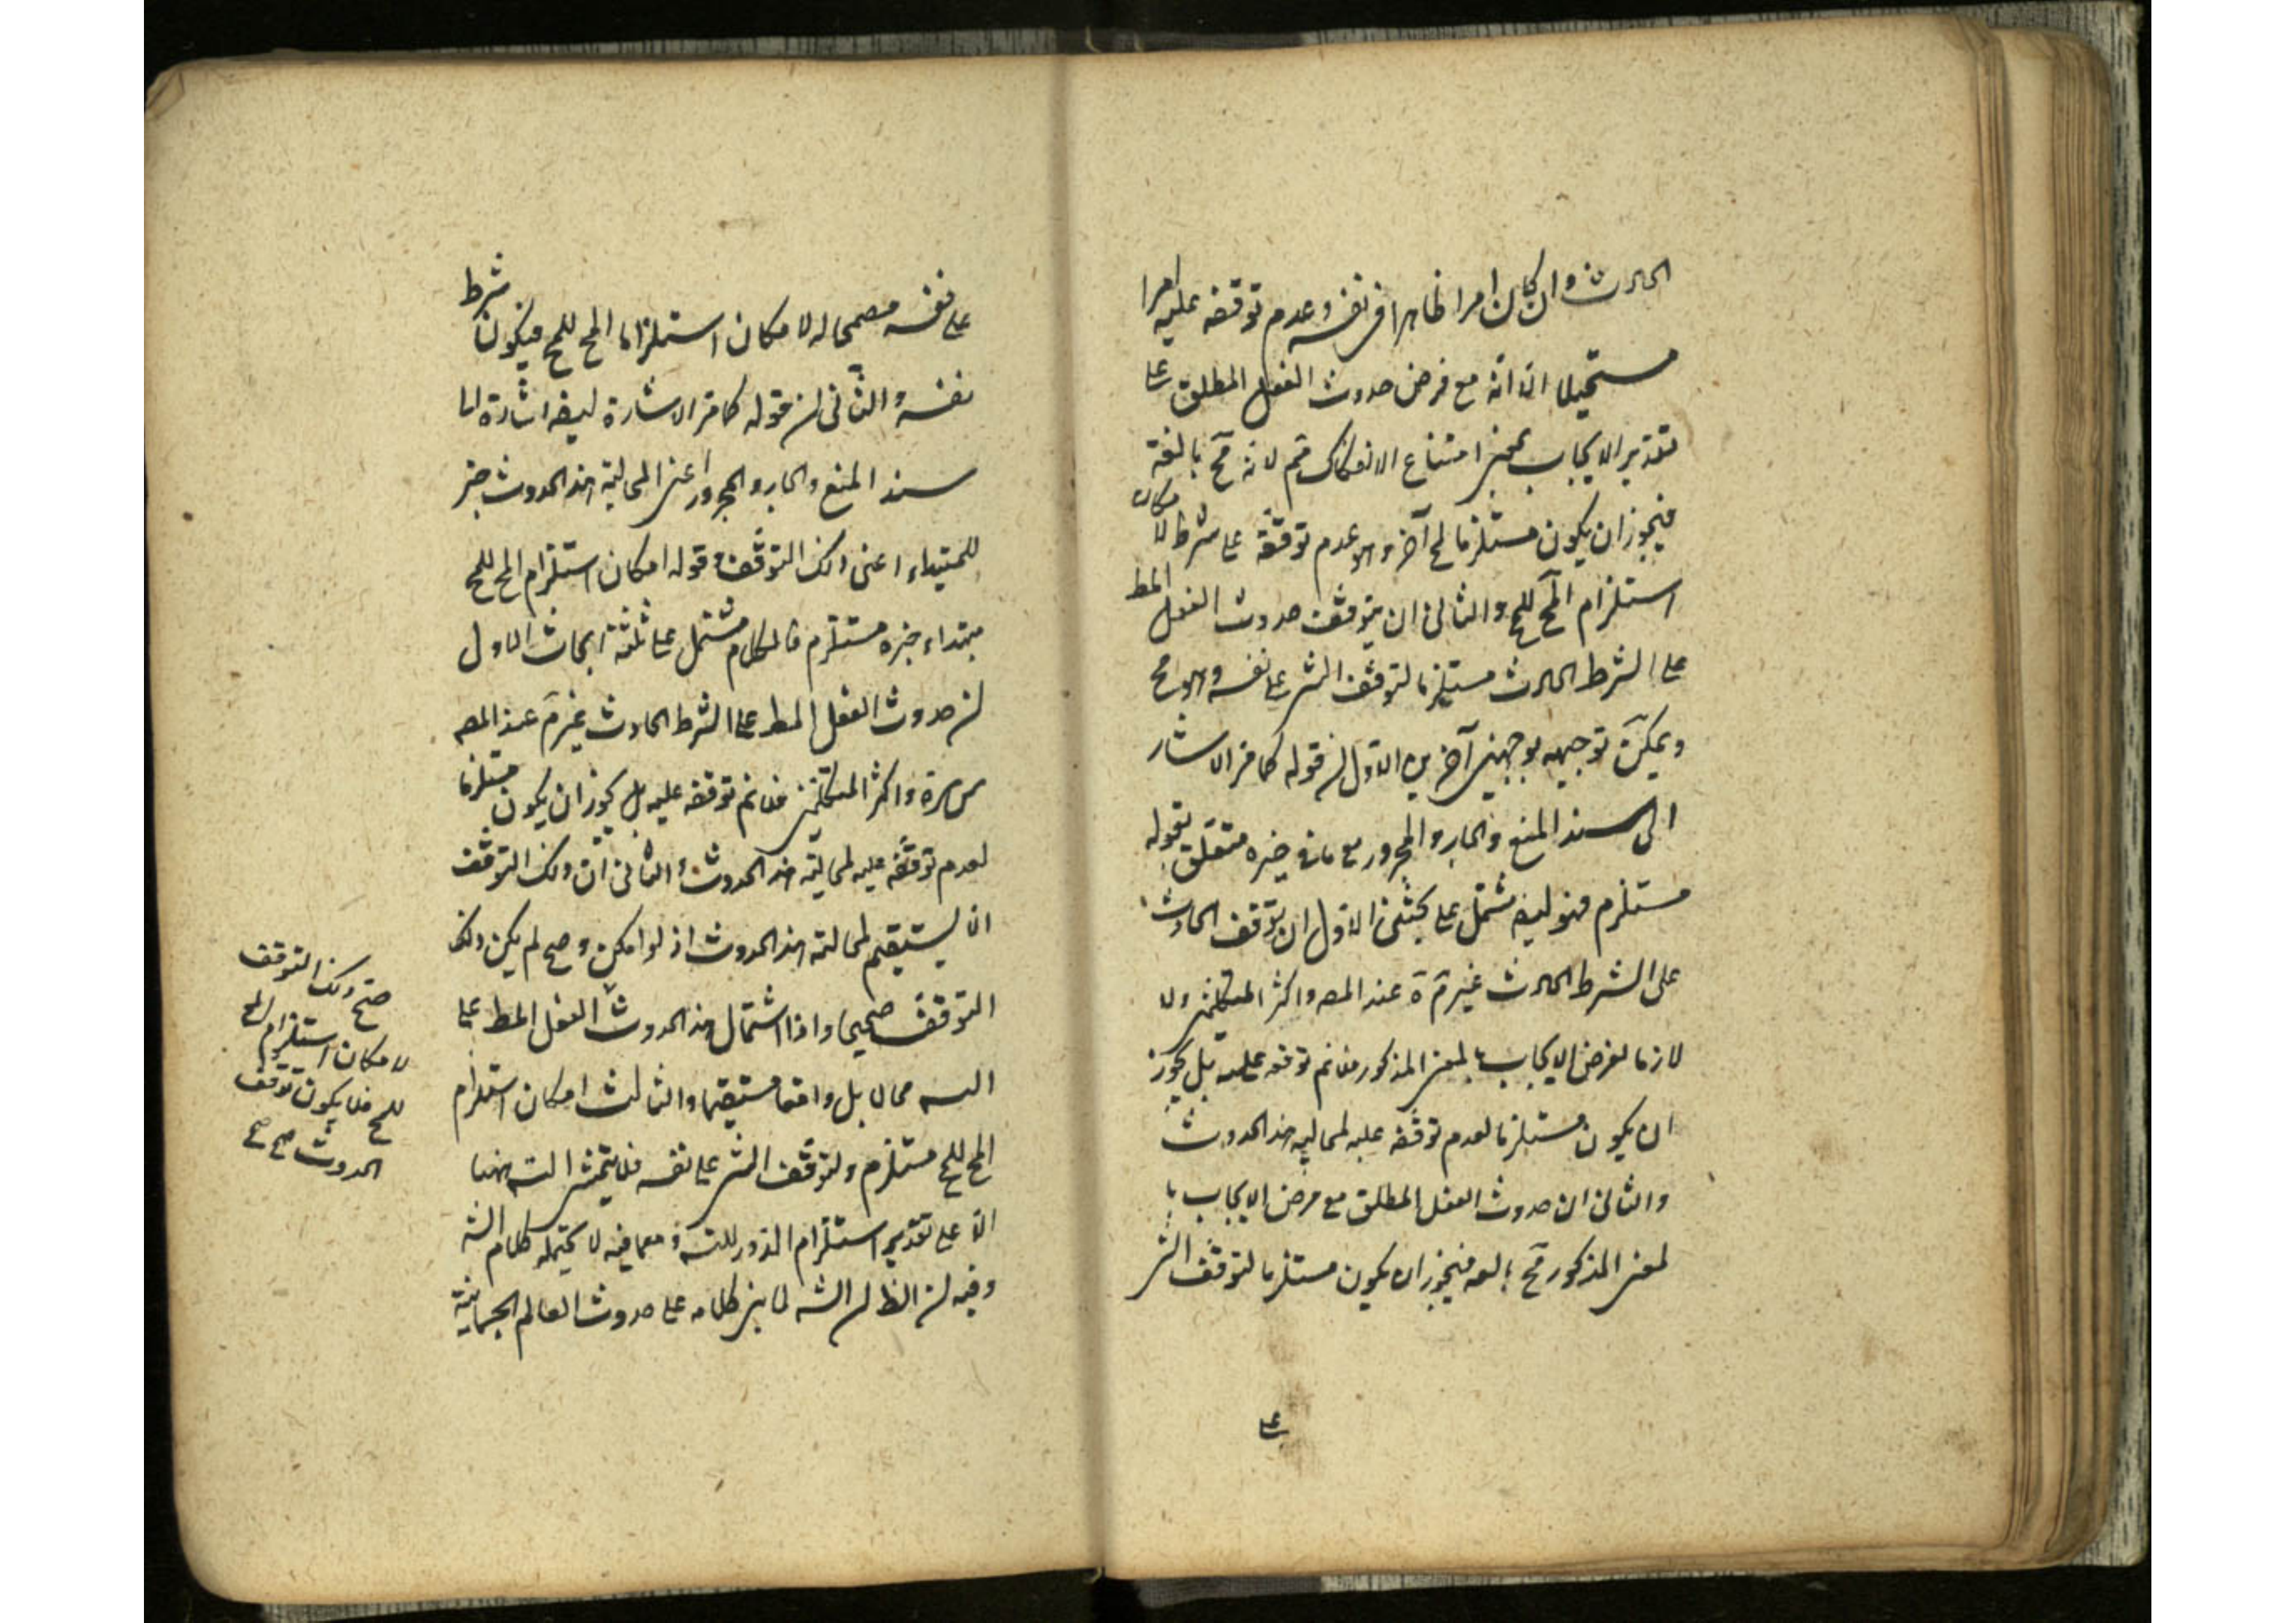 الحادث وان كان امرا ظاهرا فى نفسه وعدم توقفه عليه امرا
مستحيلا الا انه مع فرض حدوث الفعل المطلق على
تقدير الايجاب بمعنى امتناع الانفكاك لانه مح بالغه
فيجوز ان يكون مستلزما لمح آخر وهو عدم توقفه على شرط لامكان
استلزام المح للمح والثانى ان يتوقف حدوث الفعل المط
على الشرط الحادث مستلزما لتوقف الشى على نفسه وهو مح
ويمكن توجيهه بوجهين آخرين الاول ان قوله كما مر الاشار
الى سند المنع والجار والمجرور مع ما فى خبره متعلق بقوله
مستلزم فهو ايضا مشتمل على بحثين الاول ان توقف الحادث
على الشرط الحادث غير مرة عند المصه واكثر المتكلمين ولا
لازما لفرض الايجاب بالمعنى المذكور فلا نم توقفه عليه بل يجوز
ان يكون مستلزما لعدم توقفه عليه لمحالية هذا الحدوث
والثانى ان حدوث الفعل المطلق مع فرض الايجاب با
لمعنى المذكور مح بالغه فيجوز ان يكون مستلزما لتوقف الشى
على
على نفسه لامكان استلزام المح للمح فيكون شرط
نفسه والثانى ان قوله كما مر الاشارة ايضا اشارة الى
سند المنع والجار والمجرور اعنى لمحالية هذا الحدوث خبر
للمبتداء اعنى ذلك التوقف وقوله امكان استلزام المح للمح
مبتداء خبره مستلزم فالكلام مشتمل على ثلثة ابحاث الاول
ان حدوث الفعل المط على الشرط الحادث غير مرة عند المصه
واكثر المتكلمين فلا نم توقفه عليه بل يجوز ان يكون مستلزما
لعدم توقفه عليه لمحالية هذا الحدوث والثانى ان ذلك التوقف
انما يستقيم لمحالية هذا الحدوث اذ لو امكن وصح لم يكن ذلك
التوقف صحيحا واذا اشتمال هذا الحدوث الفعل المط على
الته محالا بل واقعا مستقيما والثالث امكان استلزام
المح للمح مستلزم ولتوقف الشى على نفسه فلا يتمشى الته ههنا
الا على تقدير استلزام الدور للته ومما فيه لا يحتمله كلام الشه
وفيه ان الظ ان الشه لما بنى كلامه على حدوث العالم الجسمانية
صح ذلك التوقف
لامكان استلزام المح
للمح فلا يكون توقف
الحدوث صح صح